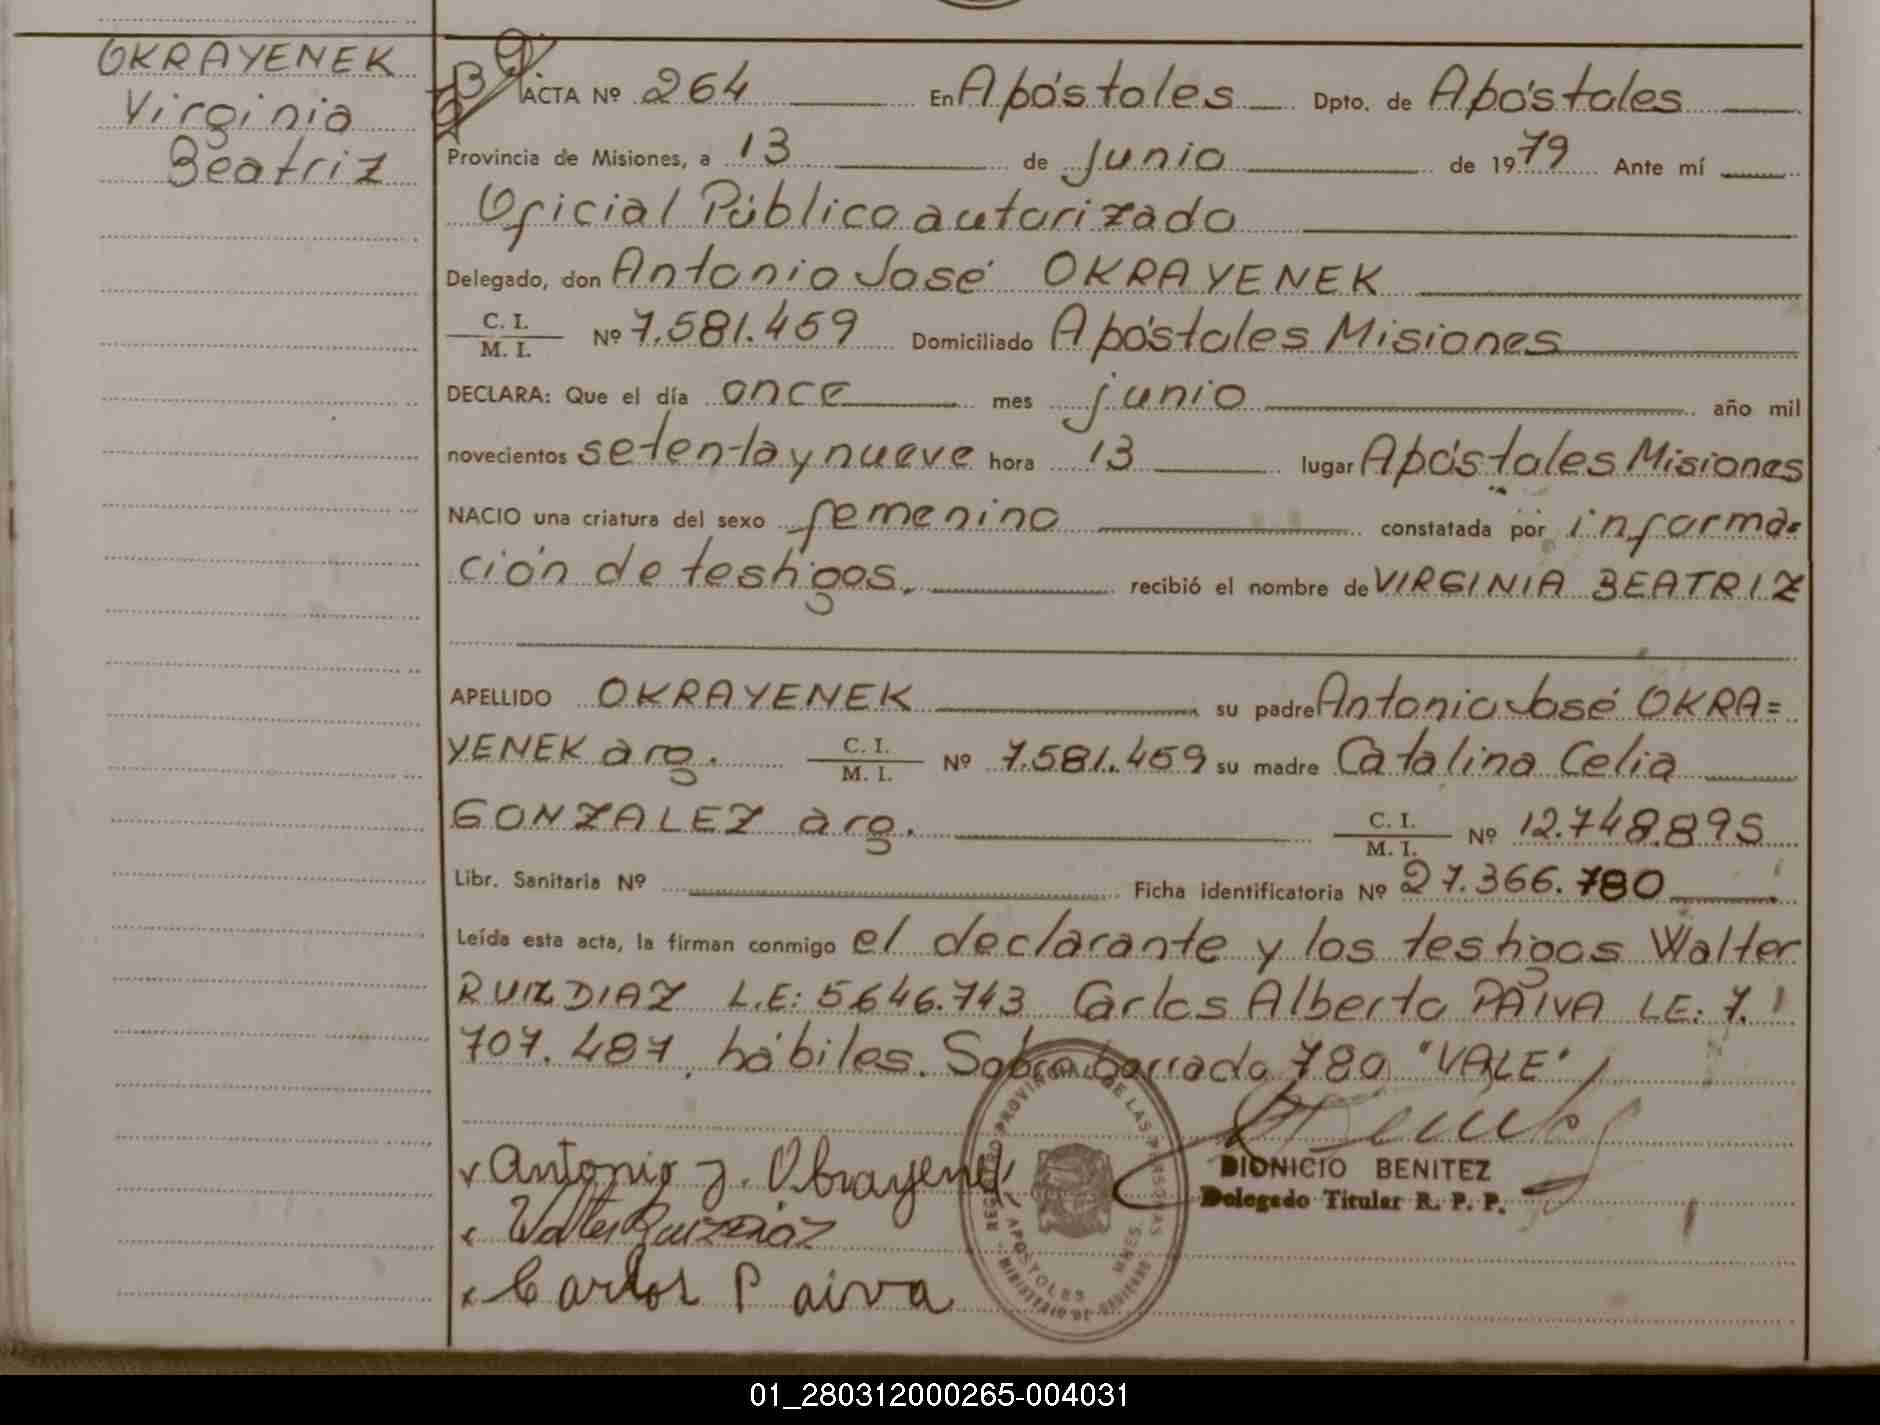 OKRAYENEK
Virginia
Beatriz
ACTA Nº 264 En Apóstoles Dpto. de Apóstoles
Provincia de Misiones, a 13 de junio de 1979 Ante mí
Oficial Público autorizado
Delegado, don Antonio José OKRAYENEK
C. I. / M. I. Nº 7.581.459 Domiciliado Apóstoles Misiones
DECLARA: Que el día once mes junio año mil
novecientos setenta y nueve hora 13 lugar Apóstoles Misiones
NACIO una criatura del sexo femenino constatada por informa-
ción de testigos. recibió el nombre de VIRGINIA BEATRIZ
APELLIDO OKRAYENEK su padre Antonio José OKRA=
YENEK arg. C. I. / M. I. Nº 7.581.459 su madre Catalina Celia
GONZALEZ arg. C. I. / M. I. Nº 12.748.895
Libr. Sanitaria Nº Ficha identificatoria Nº 27.366.780
Leída esta acta, la firman conmigo el declarante y los testigos Walter
RUIZ DIAZ L.E: 5646.743 Carlos Alberto PAIVA LE: 7.
707.487, hábiles. Sobre borrado 780 "VALE"
Antonio J. Okrayenek
DIONICIO BENITEZ
Delegado Titular R. P. P.
Walter Ruiz Diaz
Carlos Paiva
REGISTRO PROVINCIAL DE LAS PERSONAS
APOSTOLES MNES.
MINISTERIO DE GOBIERNO
01_280312000265-004031